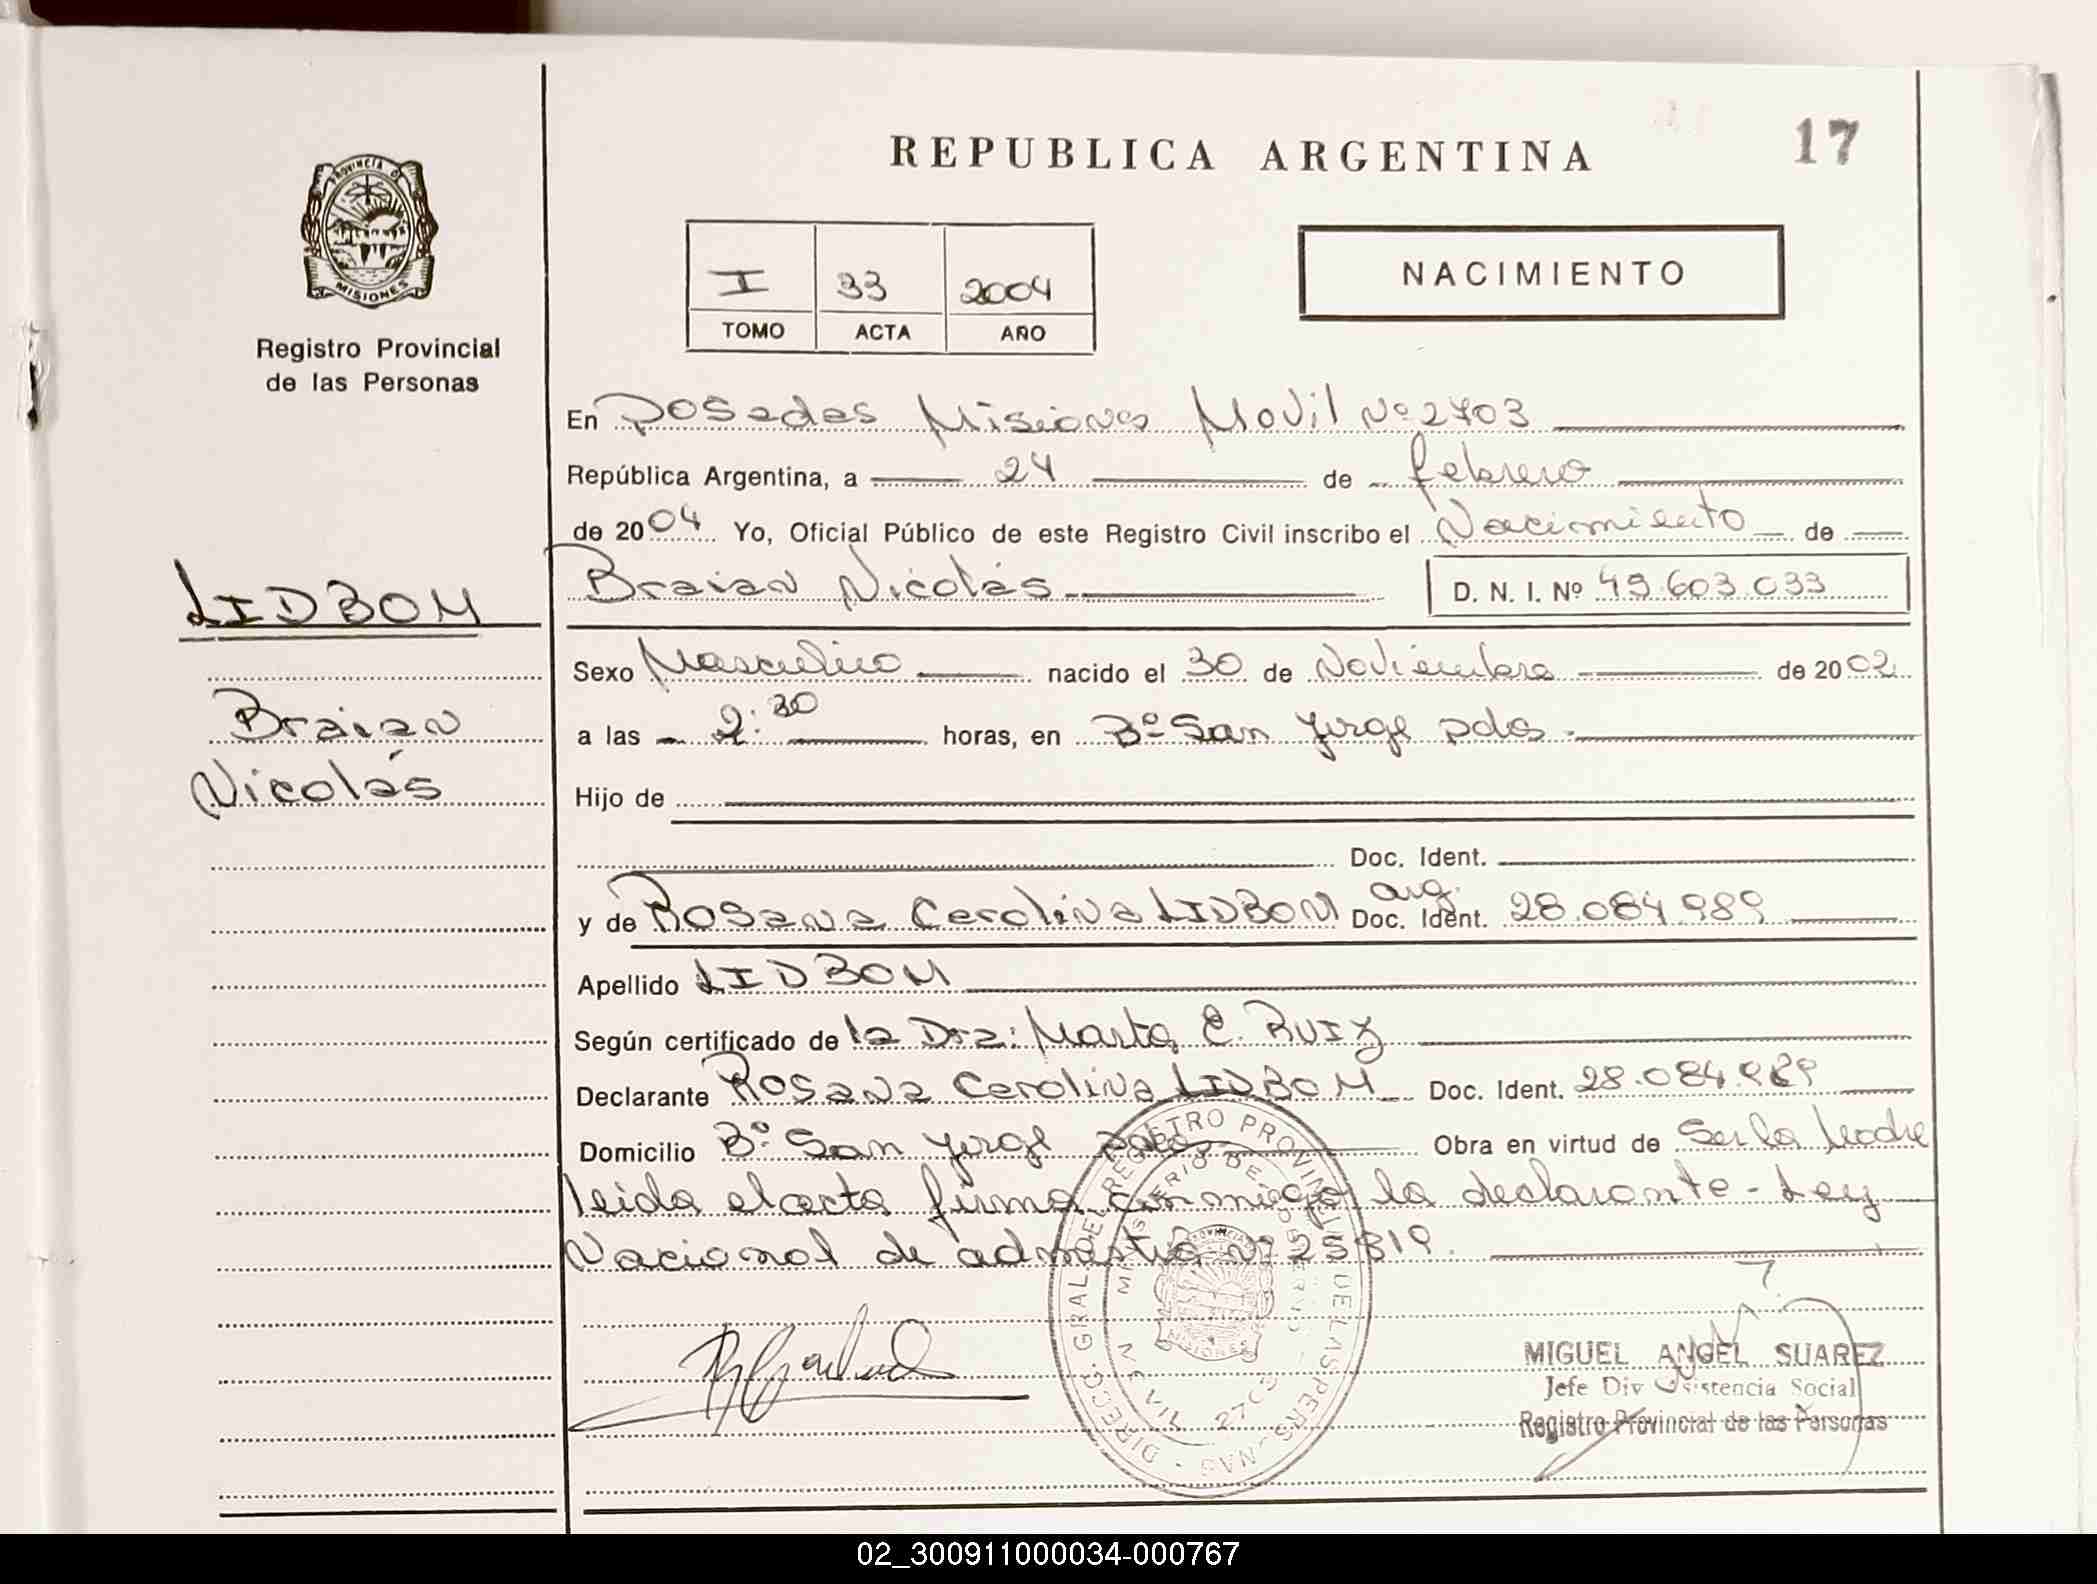 REPUBLICA ARGENTINA
17
PROVINCIA DE
MISIONES
Registro Provincial
de las Personas
I 33 2004
TOMO ACTA AÑO
NACIMIENTO
LIDBOM
Braian
Nicolás
En Posadas Misiones Movil Nº 2703
República Argentina, a 24 de febrero
de 2004 Yo, Oficial Público de este Registro Civil inscribo el Nacimiento de
Braian Nicolás D. N. I. Nº 49.603.033
Sexo Masculino nacido el 30 de Noviembre de 2002
a las 2:30 horas, en Bº San Jorge pdas.
Hijo de
Doc. Ident.
y de Rosana Carolina LIDBOM Doc. arg. Ident. 28.084.989
Apellido LIDBOM
Según certificado de la Dra: Marta E. RUIZ
Declarante Rosana Carolina LIDBOM Doc. Ident. 28.084.989
Domicilio Bº San Jorge pdas Obra en virtud de Ser la Madre
leida el acta firma conmigo la declarante - Ley
Nacional de admistía nº 25819.
DIRECC. GRAL. DEL REGISTRO PROVINCIAL DE LAS PERSONAS
MINISTERIO DE GOBIERNO
MOVIL 2703
MISIONES
MIGUEL ANGEL SUAREZ
Jefe Div Asistencia Social
Registro Provincial de las Personas
02_300911000034-000767